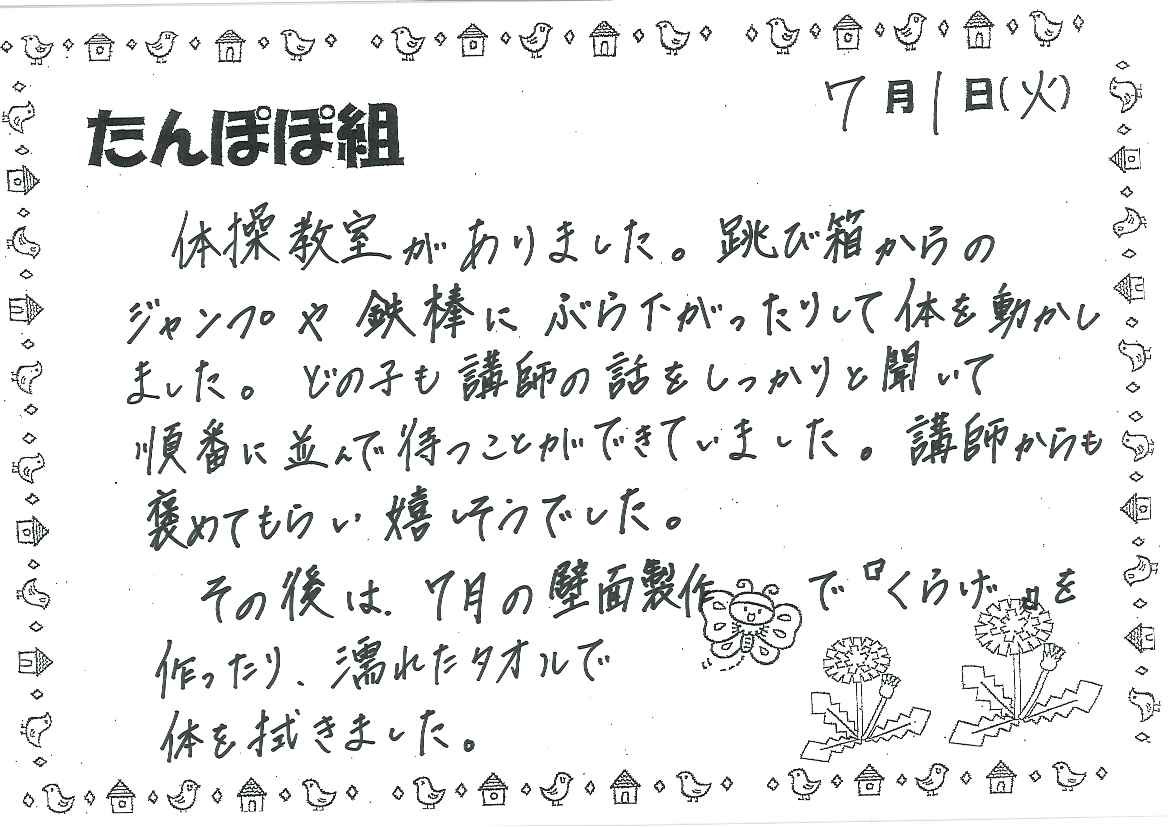 7月1日(火)
たんぽぽ組
体操教室がありました。跳び箱からの
ジャンプや鉄棒にぶら下がったりして体を動かし
ました。どの子も講師の話をしっかりと聞いて
順番に並んで待つことができていました。講師からも
褒めてもらい嬉しそうでした。
その後は、7月の壁面製作で『くらげ』を
作ったり、濡れたタオルで
体を拭きました。